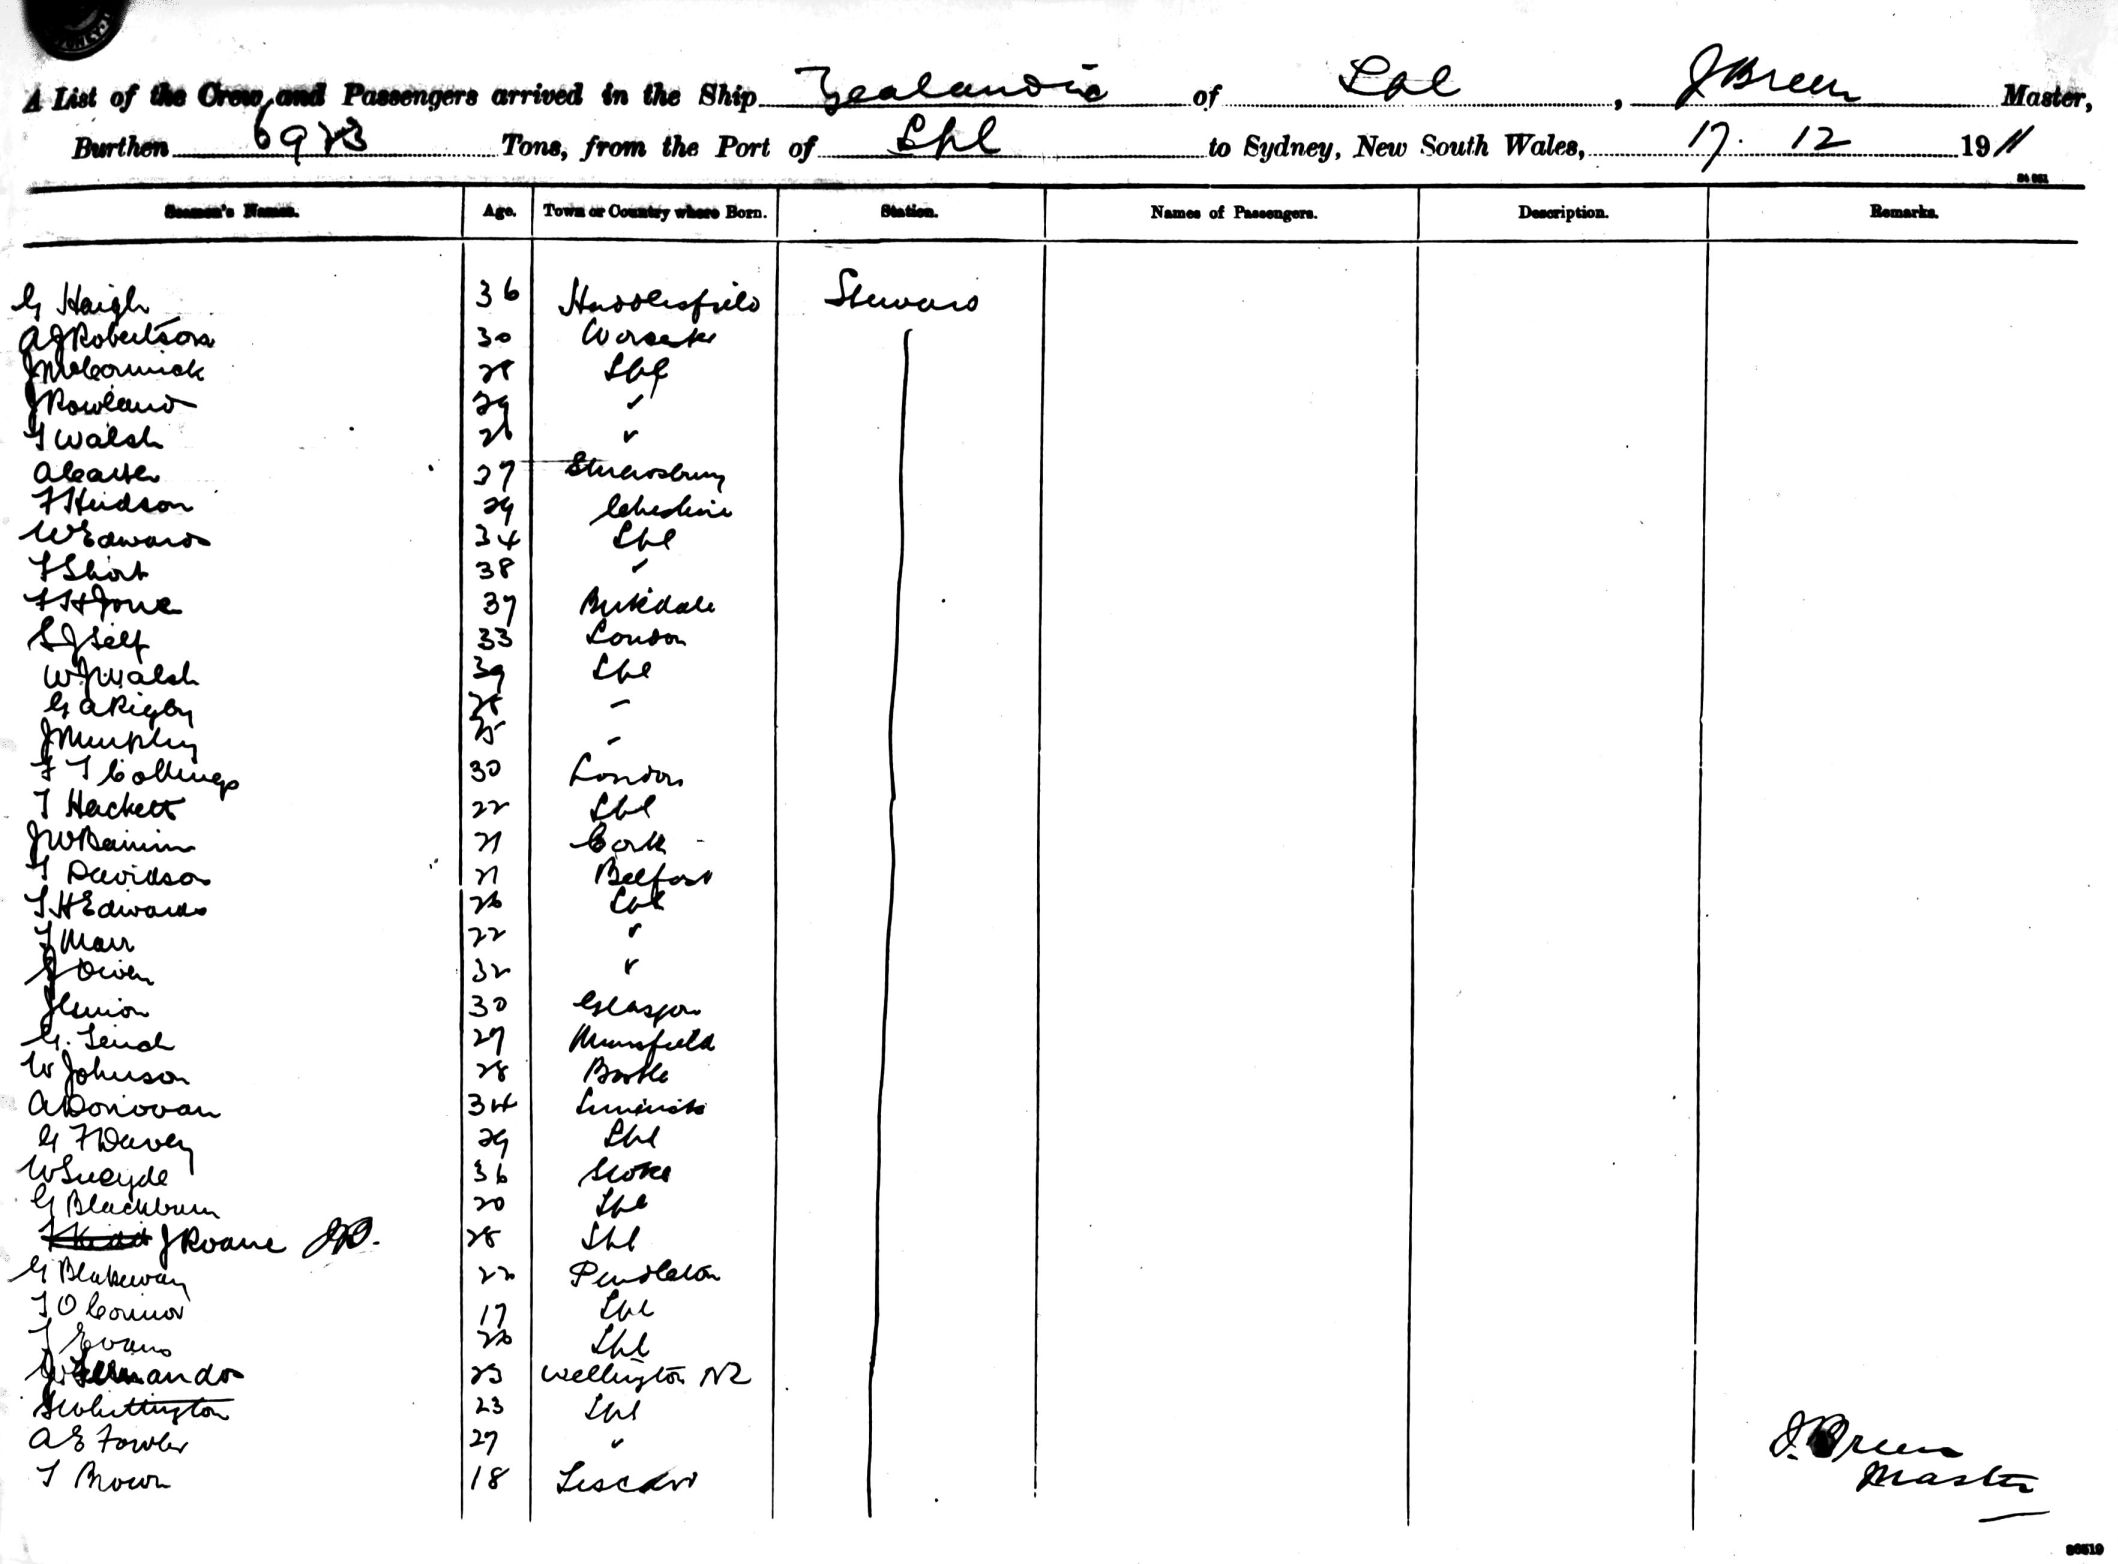 A List of the Crew and Passengers arrived in the Ship Zealandia of Lpl, J Breen Master,
Burthen 6983 Tons, from the Port of Lpl to Sydney, New South Wales, 17. 12 1911
Seamen's Names. Age. Town or Country where Born. Station. Names of Passengers. Description. Remarks.
G Haigh 36 Huddersfield Steward
A J Robertson 30
J McCormick 28 Lpl
J Rowland 29 "
T Walsh 26 "
A Carter 37 Shrewsbury
F Hudson 29 Cheshire
W Edwards 34 Lpl
T Short 38 "
F H Jones 37 Birkdale
S J Self 33 London
W J Walsh 39 Lpl
G A Rigby 28 "
J Murphy 25 "
F T Collings 30 London
T Hackett 22 Lpl
J W 21 Cork
T Davidson 21 Belfast
T H Edwards 26 Lpl
T Marr 22 "
J Owen 32 "
J 30 Glasgow
G. 27
W Johnson 28 Bootle
A Donovan 34 Limerick
G F Davey 29 Lpl
W 36 Stoke
G Blackburn 20 Lpl
J Roane JB. 28 Lpl
G Blakeway 22 Pendleton
T O Connor 17 Lpl
T Evans 20 Lpl
W Fernandos 23 Wellington NZ
Whittington 23 Lpl
A E Fowler 27 "
T Brown 18 Liscard
J. Breen
Master